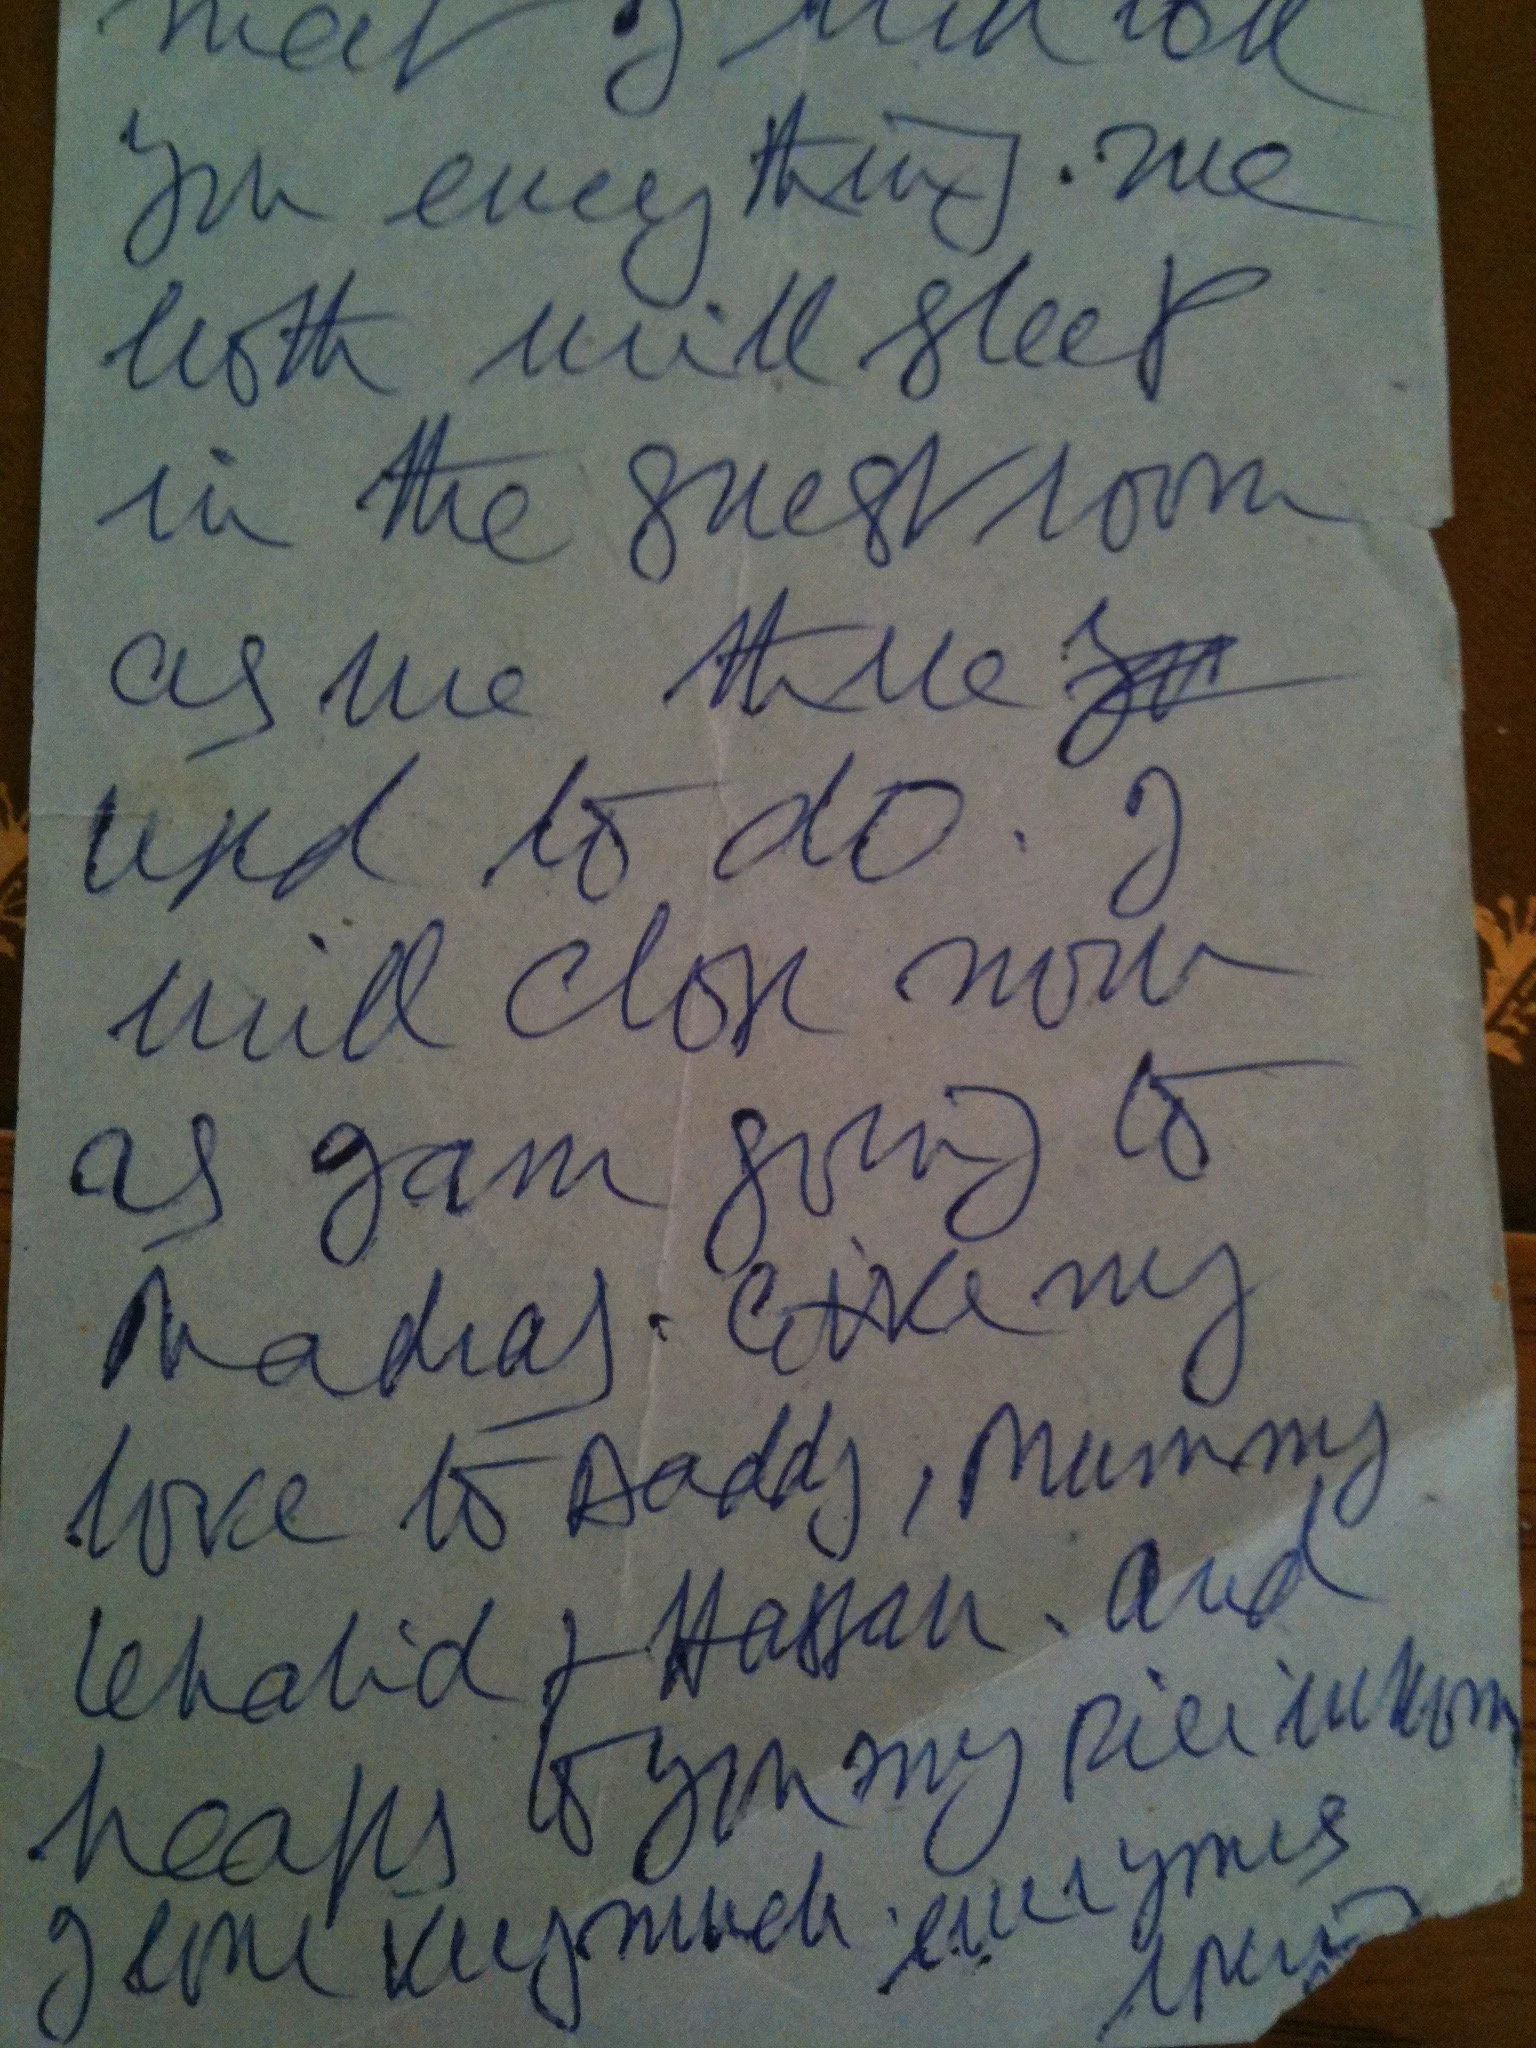 meet I will tell
you everything. we
both will sleep
in the guest room
as we three
used to do. I
will close now
as I am going to
Madras. Give my
love to Daddy, Mummy
Khalid & Hassan. and
heaps to you my whom
I love very much. ever yours